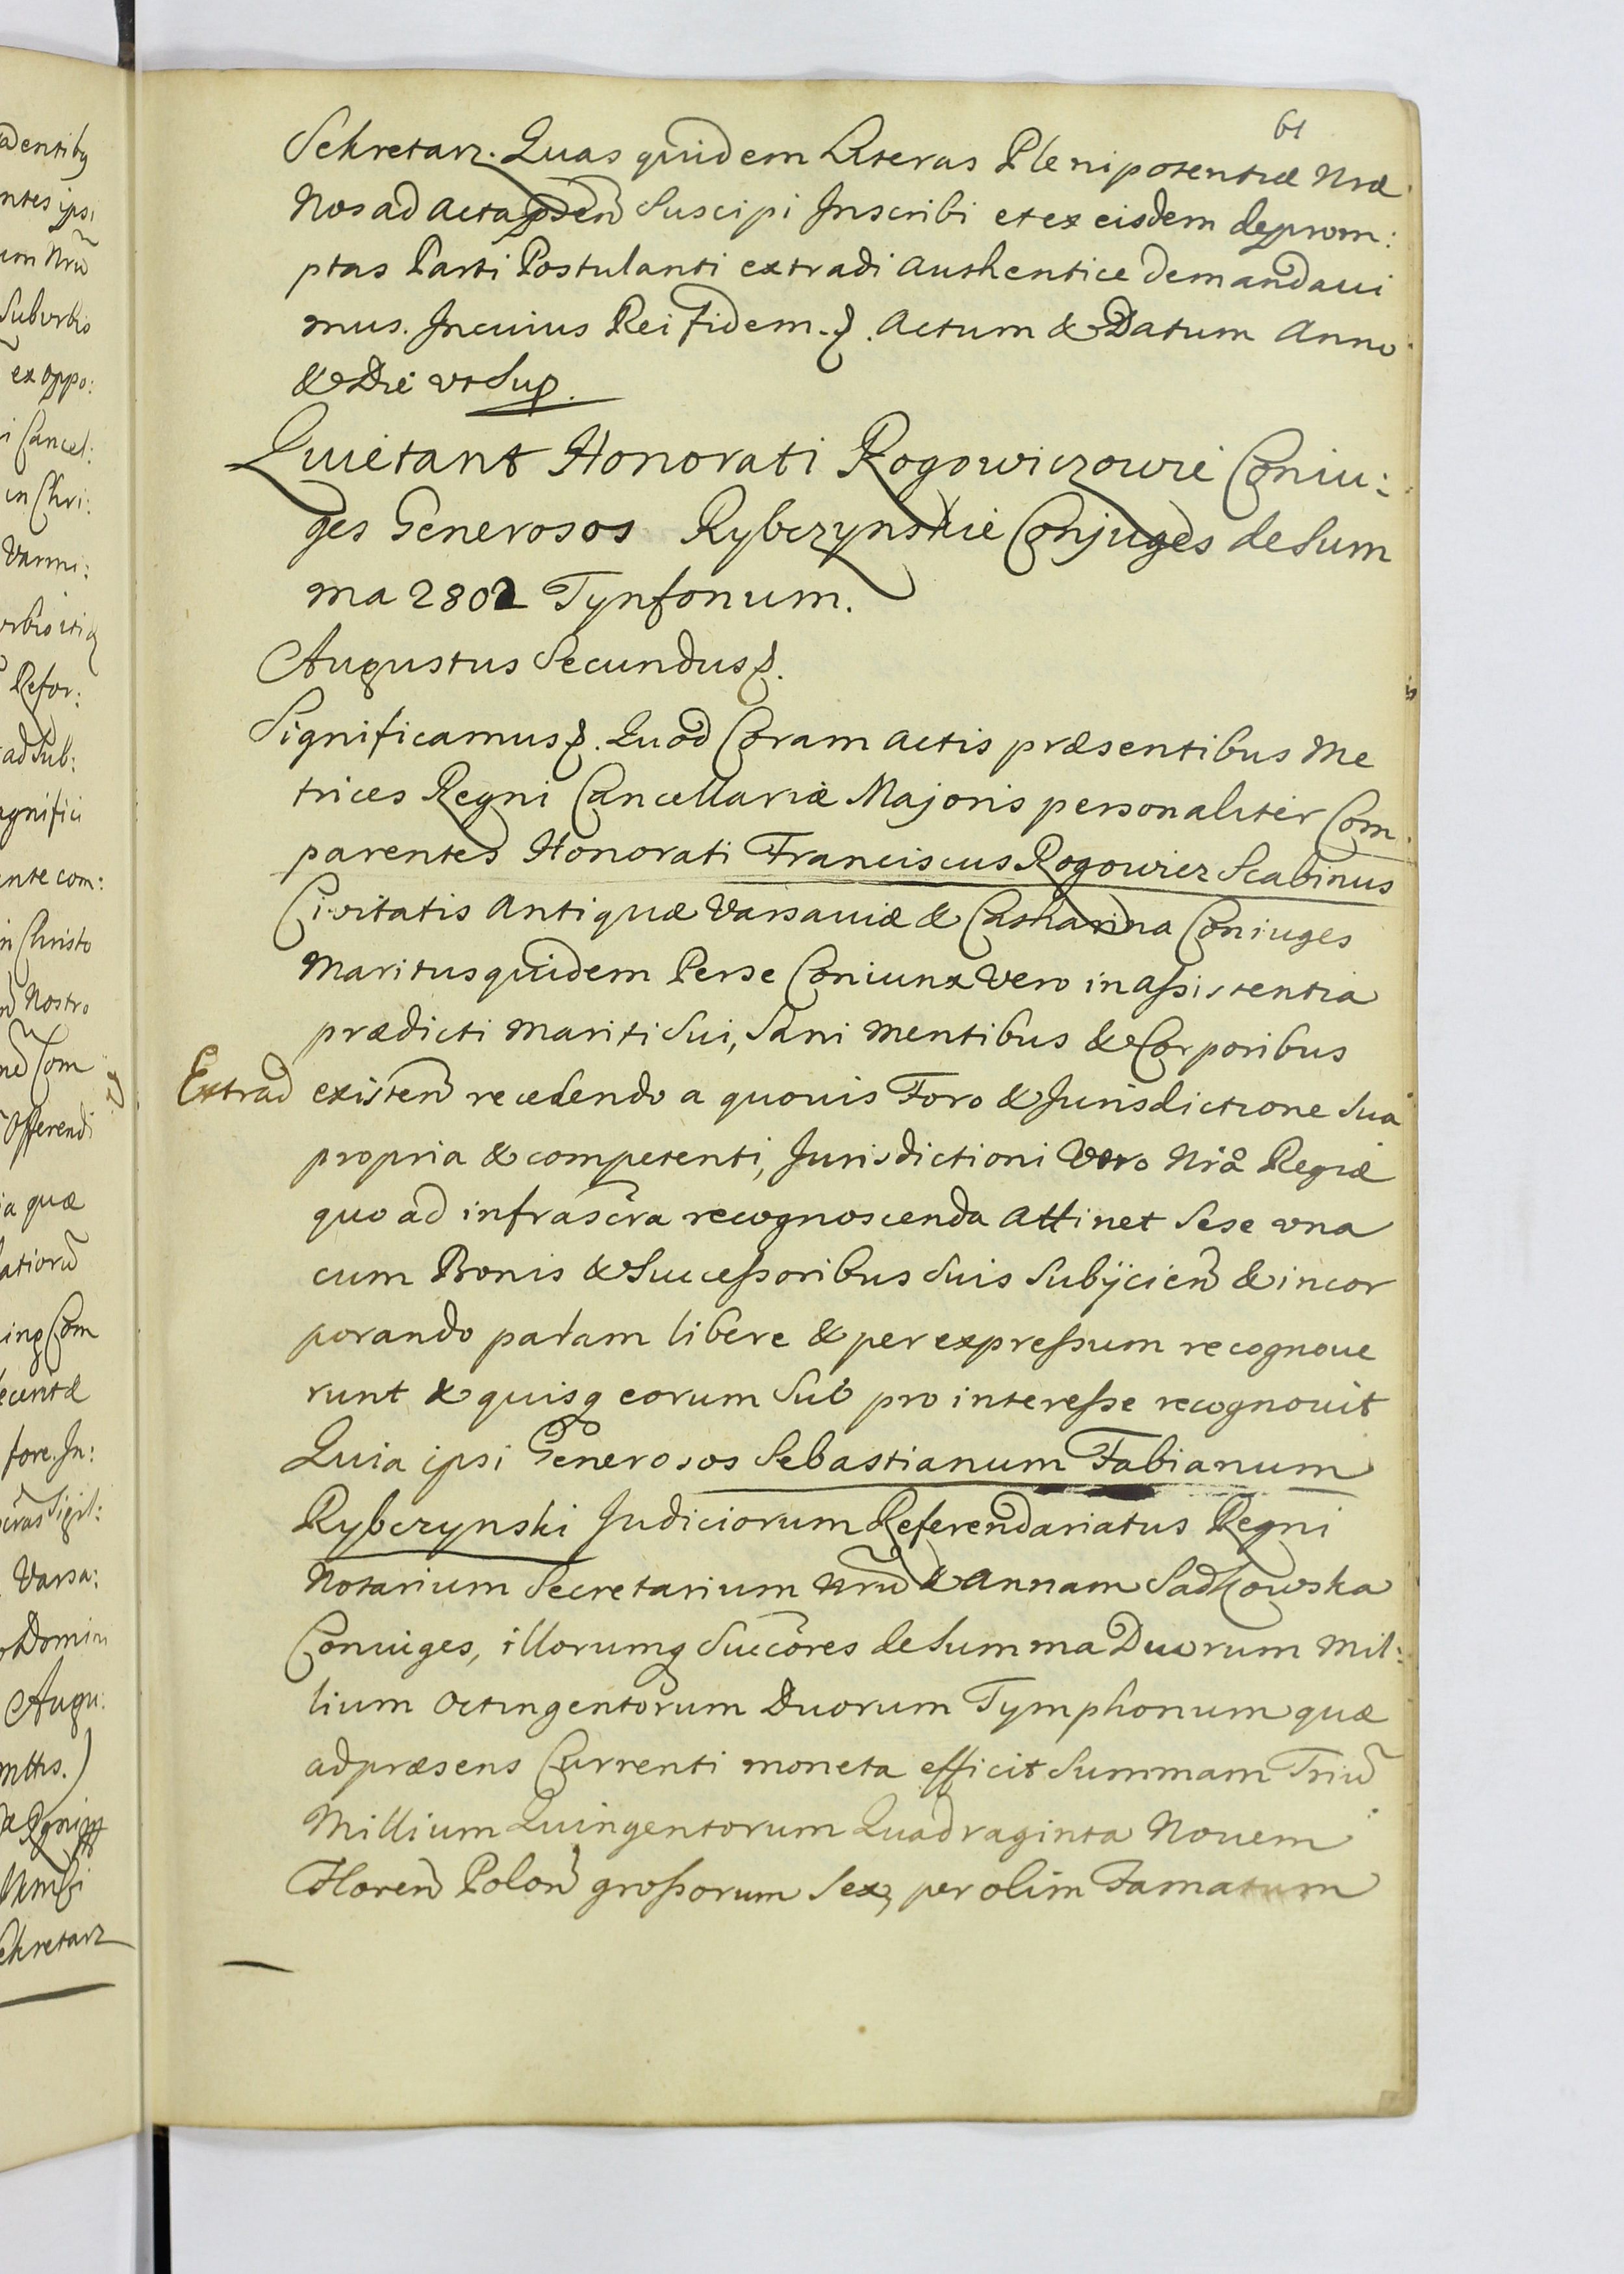 61
Sekretarz. Quas quidem Literas Plenipotentiæ Nræ
Nos ad Acta præsen̄ Suscipi Inscribi et ex eisdem deprom:
ptas Parti Postulanti extradi Authentice demandaui
mus. In cuius Rei fidem. Actum & Datum Anno
& Die vt Sup.
Quietant Honorati Rogowiczowie Coniu:
ges Generosos Rybczynskie Conjuges de Sum
ma 2802 Tynfonum.
Augustus Secundus
Significamus Quod Coram Actis præsentibus Me
trices Regni Cancellariæ Majoris personaliter Com
parentes Honorati Franciscus Rogowicz Scabinus
Civitatis Antiquæ Varsauiæ & Catharina Coniuges
Maritus quidem Per se Coniunx Vero in assistentia
prædicti Mariti Sui, Sani Mentibus & Corporibus
Extrad
existen̄ recedendo a quouis Foro & Jurisdictione Sua
propria & competenti, Jurisdictioni Vero Nræ Regiæ
quo ad infrascra recognoscenda Attinet Sese vna
cum Bonis & Successoribus Suis Subÿcien̄ & incor
porando palam libere & per expressum recognoue
runt & quisq eorum Sub pro interesse recognouit
Quia ipsi Generosos Sebastianum Fabianum
Rybczynski Judiciorum Referendariatus Regni
Notarium Secretarium Nrū & Annam Sadkowska
Coniuges, illorumq Succ̄ores de Summa Duorum Mil:
lium Octingentorum Duorum Tymphonum quæ
ad præsens Currenti moneta efficit Summam Triū
Millium Quingentorum Quadraginta Nouem
Floren̄ Polon̄ grossorum Sex, per olim Famatum